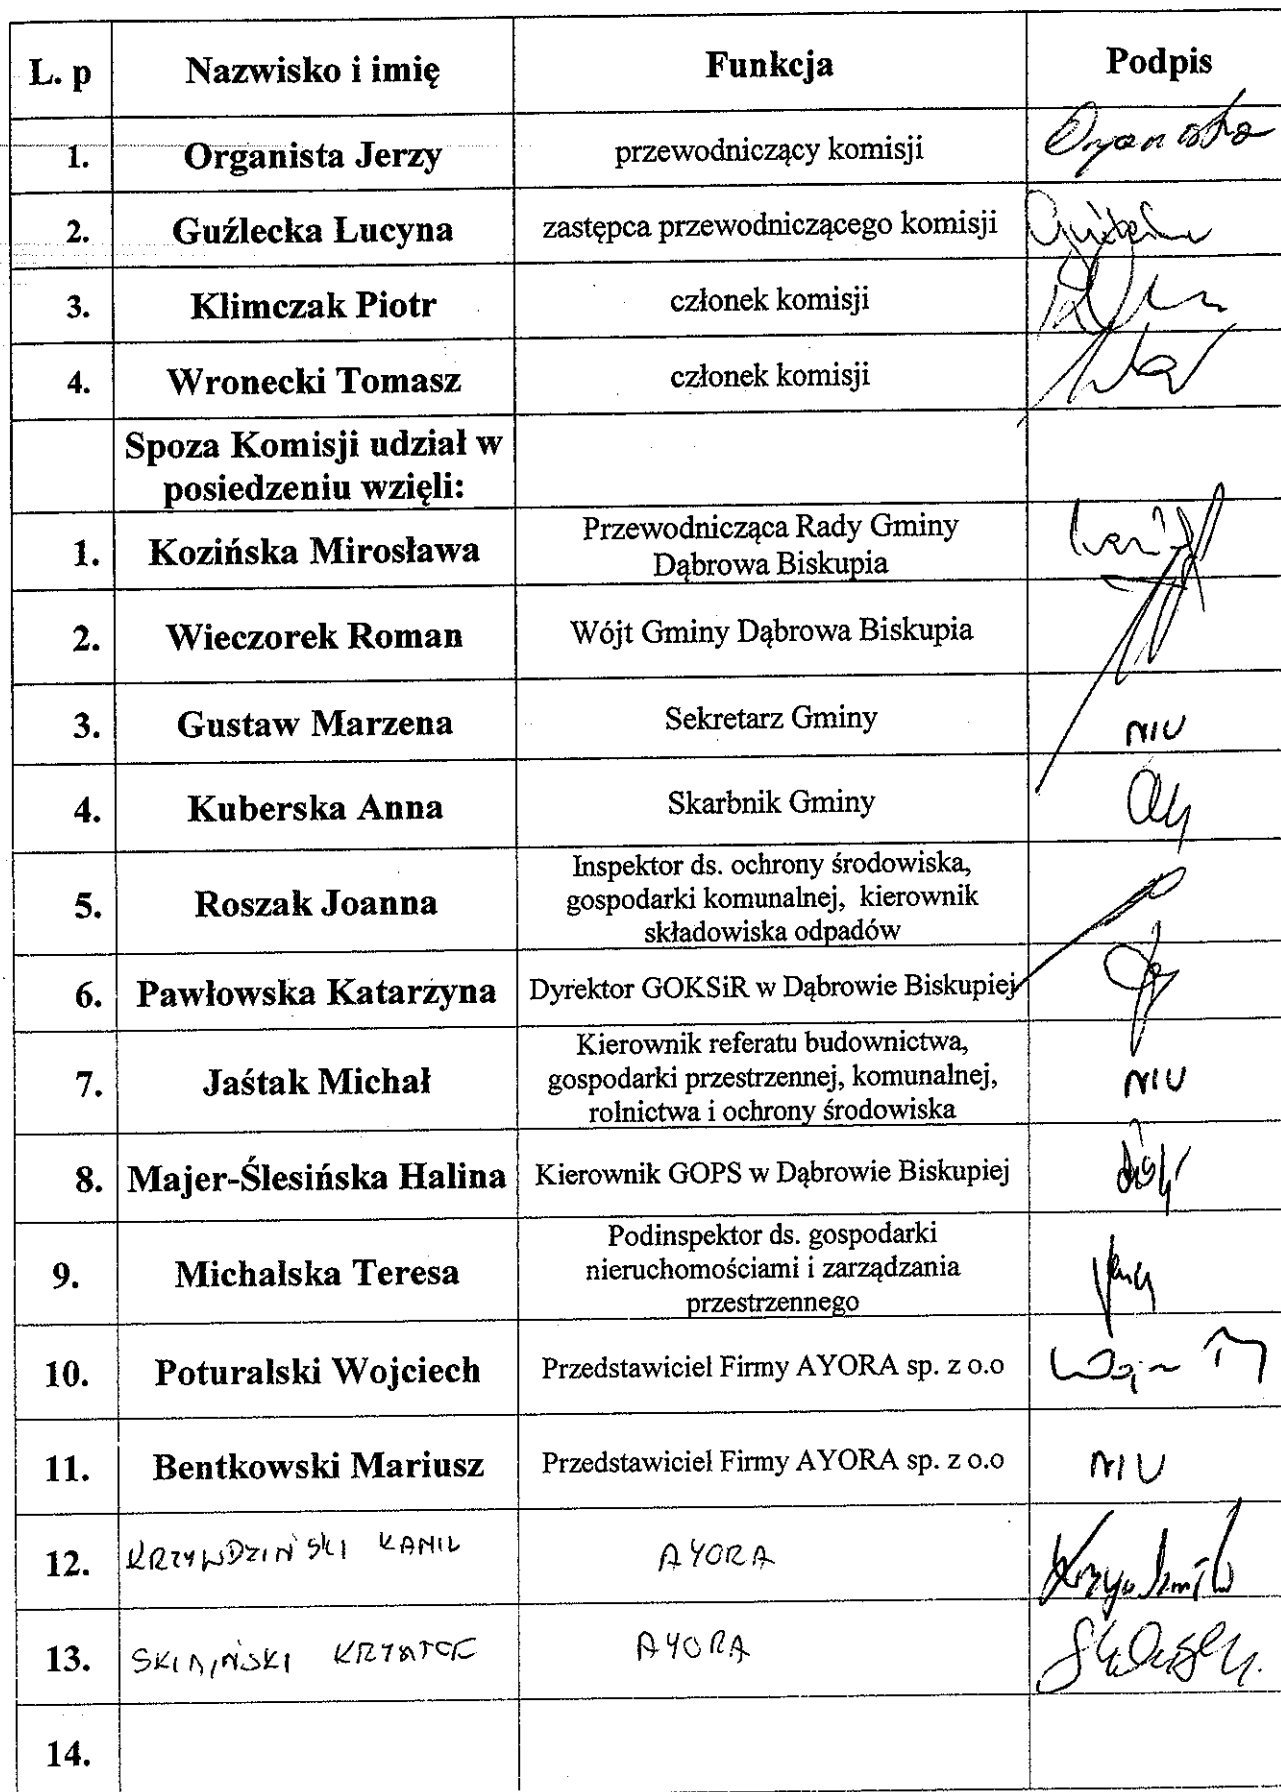 L. p Nazwisko i imię Funkcja Podpis
1. Organista Jerzy przewodniczący komisji
2. Guźlecka Lucyna zastępca przewodniczącego komisji
3. Klimczak Piotr członek komisji
4. Wronecki Tomasz członek komisji
Spoza Komisji udział w
posiedzeniu wzięli:
1. Kozińska Mirosława Przewodnicząca Rady Gminy
Dąbrowa Biskupia
2. Wieczorek Roman Wójt Gminy Dąbrowa Biskupia
3. Gustaw Marzena Sekretarz Gminy NIU
4. Kuberska Anna Skarbnik Gminy
5. Roszak Joanna Inspektor ds. ochrony środowiska,
gospodarki komunalnej, kierownik
składowiska odpadów
6. Pawłowska Katarzyna Dyrektor GOKSiR w Dąbrowie Biskupiej
7. Jaśtak Michał Kierownik referatu budownictwa,
gospodarki przestrzennej, komunalnej,
rolnictwa i ochrony środowiska
NIU
8. Majer-Ślesińska Halina Kierownik GOPS w Dąbrowie Biskupiej
9. Michalska Teresa Podinspektor ds. gospodarki
nieruchomościami i zarządzania
przestrzennego
10. Poturalski Wojciech Przedstawiciel Firmy AYORA sp. z o.o
11. Bentkowski Mariusz Przedstawiciel Firmy AYORA sp. z o.o NIU
12. KRZYWDZIŃSKI KAMIL AYORA
13. AYORA
14.